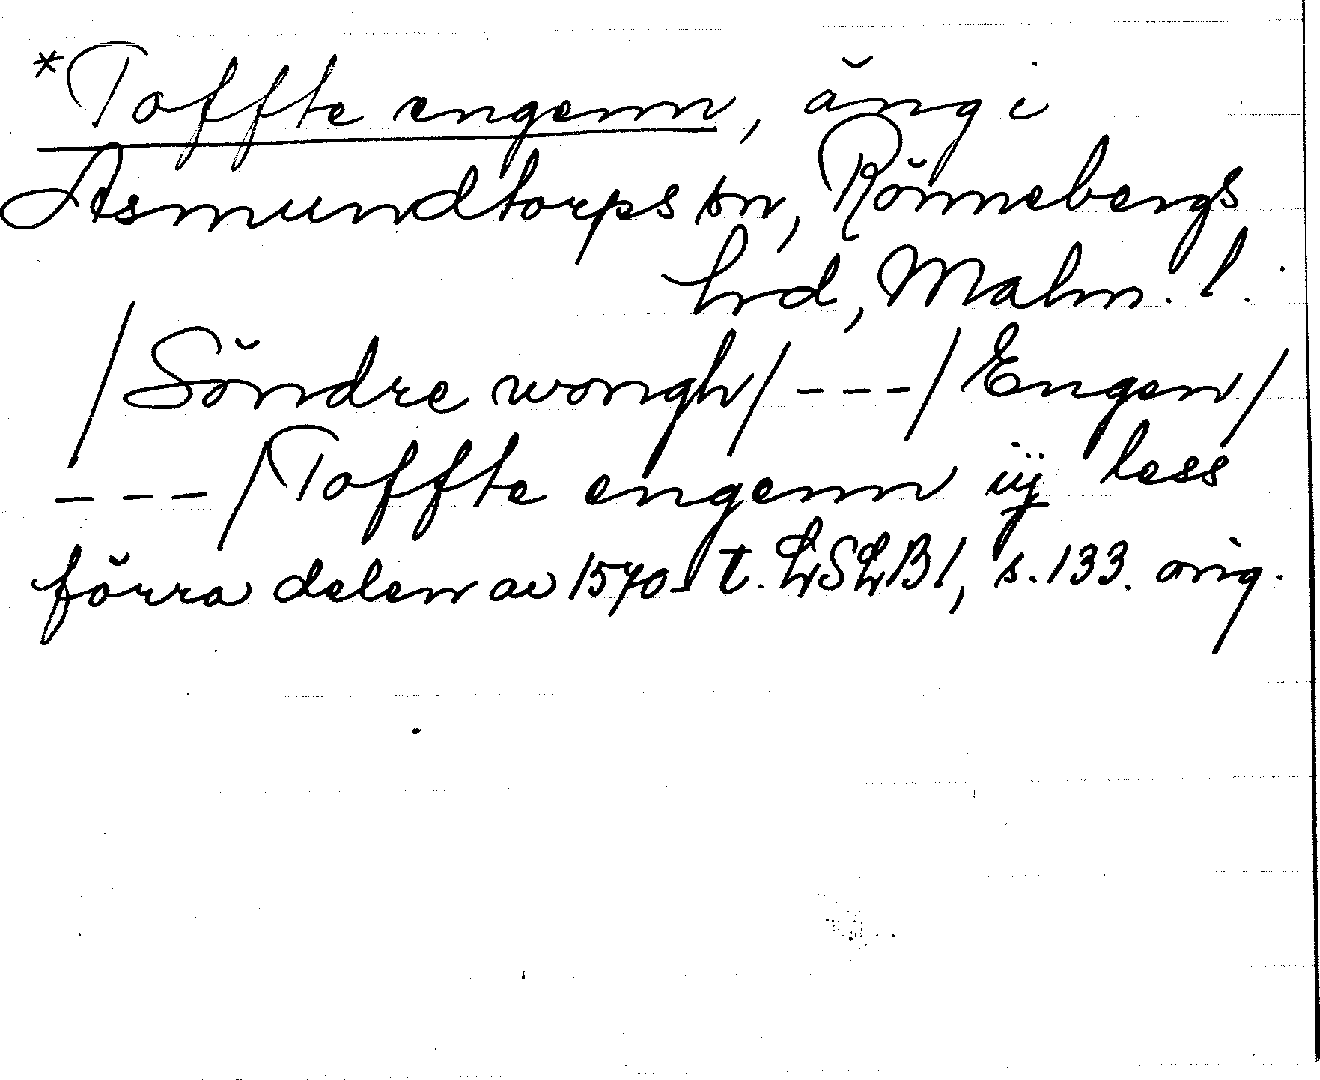 *Toffte engenn, äng i
Asmundtorps sn, Rönnebergs
hrd, Malm. l.
/Söndre wongh/ - - - / Engen/
- - - /Toffte engenn iij less
förra delen av 1570-t. LSLB1, s. 133. orig.